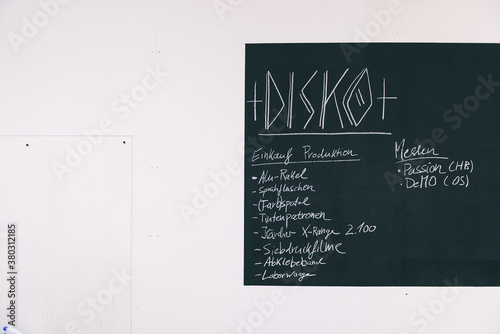 +DISKO+
Einkauf Produktion
- Alu-Rakel
- Sprühflaschen
- (Farb)spatel
- Tintenpatronen
- Kärcher X-Range 2.100
- Siebdruckfilme
- Abklebeband
- Laborwaage
Messen
• Passion (HB)
• DeMO (OS)
380312185
Adobe Stock